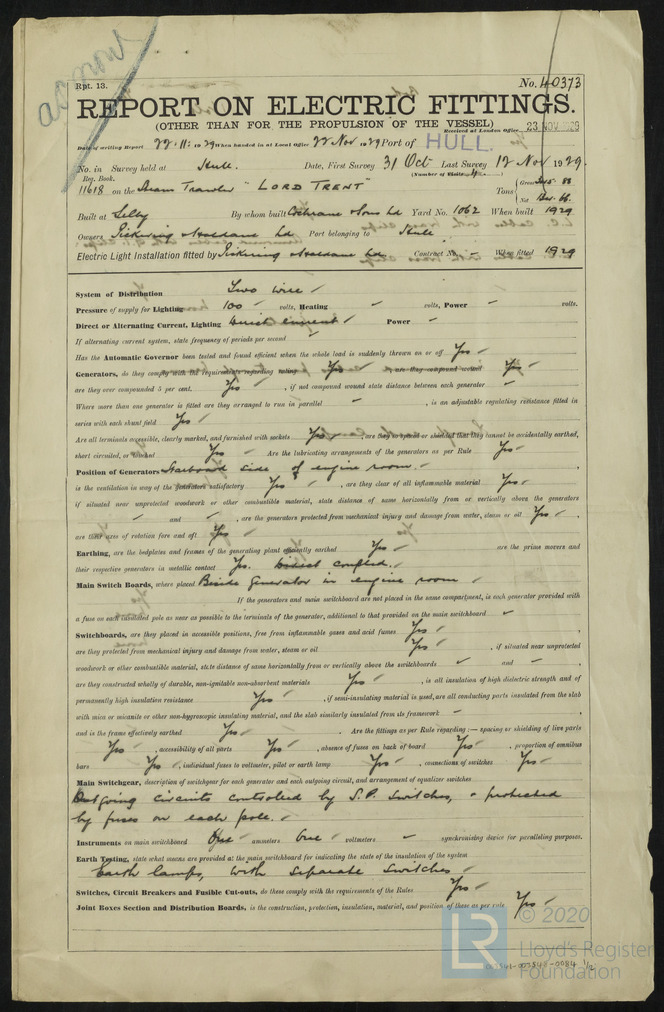 Rpt. 13.
No. 40373
REPORT ON ELECTRIC FITTINGS.
(OTHER THAN FOR THE PROPULSION OF THE VESSEL)
Received at London Office 23 NOV 1929
Date of writing Report 22.11.1929 When handed in at Local Office 22 Nov 1929 Port of HULL.
No. in Survey held at Hull. Date, First Survey 31 Oct Last Survey 12 Nov 1929.
Reg. Book. (Number of Visits 4)
11618 on the Steam Trawler "LORD TRENT" Tons Gross Net
Built at Selby By whom built Cochrane & Sons Ld Yard No. 1062 When built 1929
Owners Pickering & Haldane Ld Port belonging to Hull
Electric Light Installation fitted by Pickering & Haldane Ld Contract No. - When fitted 1929
System of Distribution Two Wire ✓
Pressure of supply for Lighting 100 ✓ volts, Heating ✓ volts, Power ✓ volts.
Direct or Alternating Current, Lighting Direct current ✓ Power ✓
If alternating current system, state frequency of periods per second ✓
Has the Automatic Governor been tested and found efficient when the whole load is suddenly thrown on or off Yes ✓
Generators, do they comply with the requirements regarding rating Yes ✓, are they compound wound Yes ✓
are they over compounded 5 per cent. Yes ✓, if not compound wound state distance between each generator ✓
Where more than one generator is fitted are they arranged to run in parallel ✓, is an adjustable regulating resistance fitted in
series with each shunt field Yes ✓
Are all terminals accessible, clearly marked, and furnished with sockets Yes ✓, are they so spaced or shielded that they cannot be accidentally earthed,
short circuited, or touched Yes ✓ Are the lubricating arrangements of the generators as per Rule Yes ✓
Position of Generators Starboard side of engine room. ✓
is the ventilation in way of the generators satisfactory Yes ✓, are they clear of all inflammable material Yes ✓
if situated near unprotected woodwork or other combustible material, state distance of same horizontally from or vertically above the generators
✓ and ✓, are the generators protected from mechanical injury and damage from water, steam or oil Yes ✓,
are their axes of rotation fore and aft Yes ✓
Earthing, are the bedplates and frames of the generating plant efficiently earthed Yes ✓ are the prime movers and
their respective generators in metallic contact Yes. Direct coupled. ✓
Main Switch Boards, where placed Beside Generator in engine room ✓
If the generators and main switchboard are not placed in the same compartment, is each generator provided with
a fuse on each insulated pole as near as possible to the terminals of the generator, additional to that provided on the main switchboard ✓
Switchboards, are they placed in accessible positions, free from inflammable gases and acid fumes Yes ✓,
are they protected from mechanical injury and damage from water, steam or oil Yes ✓, if situated near unprotected
woodwork or other combustible material, state distance of same horizontally from or vertically above the switchboards ✓ and ✓,
are they constructed wholly of durable, non-ignitable non-absorbent materials Yes ✓, is all insulation of high dielectric strength and of
permanently high insulation resistance Yes ✓, if semi-insulating material is used, are all conducting parts insulated from the slab
with mica or micanite or other non-hygroscopic insulating material, and the slab similarly insulated from its framework ✓,
and is the frame effectively earthed Yes ✓. Are the fittings as per Rule regarding :— spacing or shielding of live parts
Yes ✓, accessibility of all parts Yes ✓, absence of fuses on back of board Yes ✓, proportion of omnibus
bars Yes ✓, individual fuses to voltmeter, pilot or earth lamp Yes ✓, connections of switches Yes ✓
Main Switchgear, description of switchgear for each generator and each outgoing circuit, and arrangement of equalizer switches
Outgoing circuits controlled by S.P. Switches, & protected
by fuses on each pole. ✓
Instruments on main switchboard One ✓ ammeters One ✓ voltmeters ✓ synchronising device for paralleling purposes.
Earth Testing, state what means are provided at the main switchboard for indicating the state of the insulation of the system
Earth lamps, with separate switches ✓
Switches, Circuit Breakers and Fusible Cut-outs, do these comply with the requirements of the Rules Yes ✓
Joint Boxes Section and Distribution Boards, is the construction, protection, insulation, material, and position of these as per rule Yes ✓
LR
© 2020
Lloyd's Register
Foundation
1/2